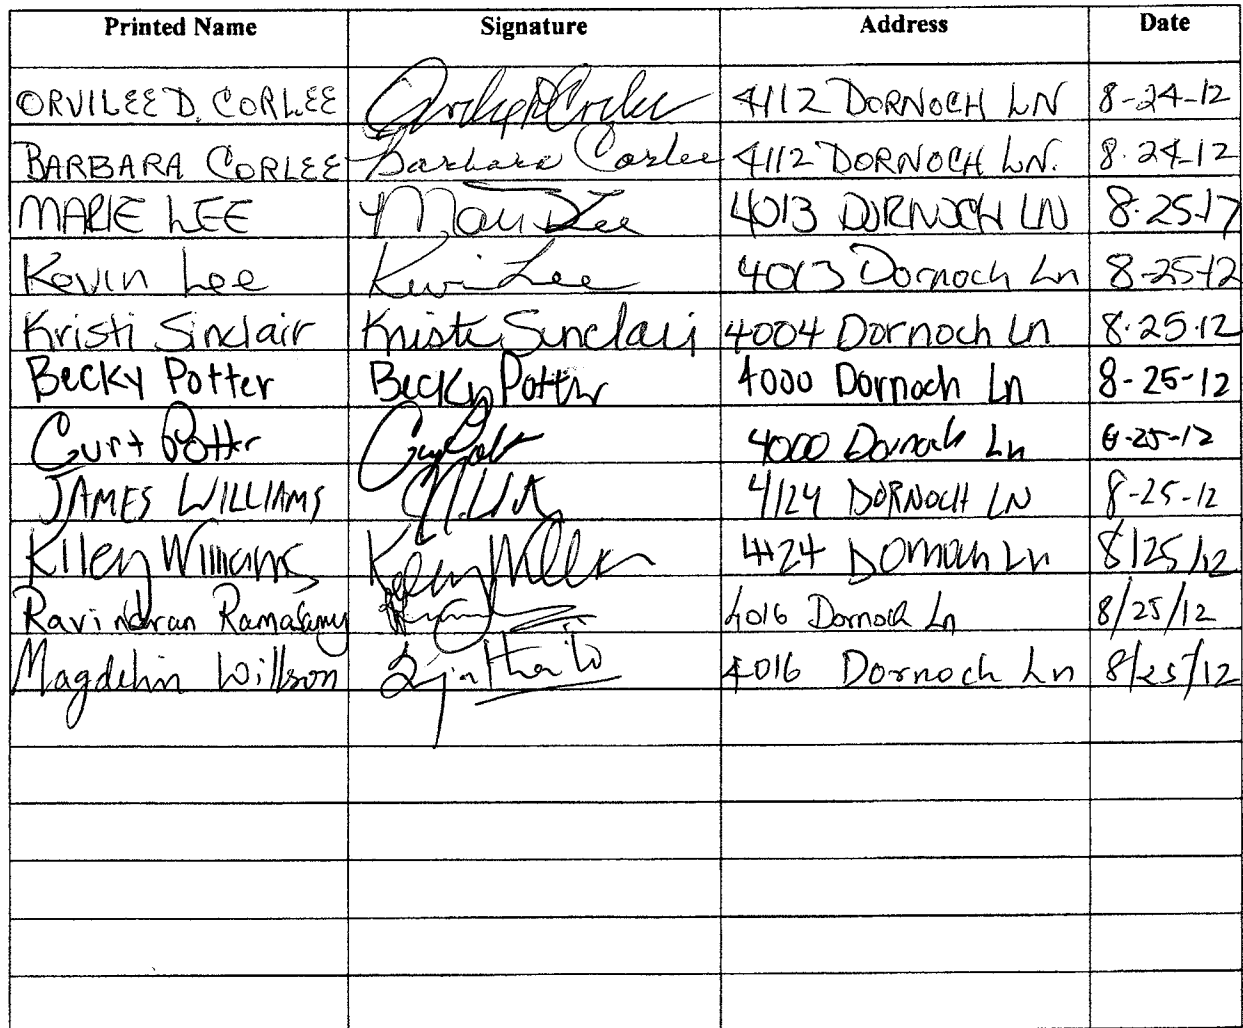 Printed Name Signature Address Date
ORVILEE D. CORLEE 4112 DORNOCH LN 8-24-12
BARBARA CORLEE Barbara Corlee 4112 DORNOCH LN. 8.24-12
MARIE LEE Lee 4013 DORNOCH LN 8-25-12
Kevin Lee Lee 4013 Dornoch Ln 8-25-12
Kristi Sinclair Kristi Sinclair 4004 Dornoch Ln 8.25.12
Becky Potter Becky Potter 4000 Dornoch Ln 8-25-12
Curt Potter 4000 Dornoch Ln 8-25-12
JAMES WILLIAMS 4124 DORNOCH LN 8-25-12
Williams 4124 Dornoch Ln 8/25/12
Ravindran 4016 Dornoch Ln 8/25/12
Magdelin Willson 4016 Dornoch Ln 8/25/12